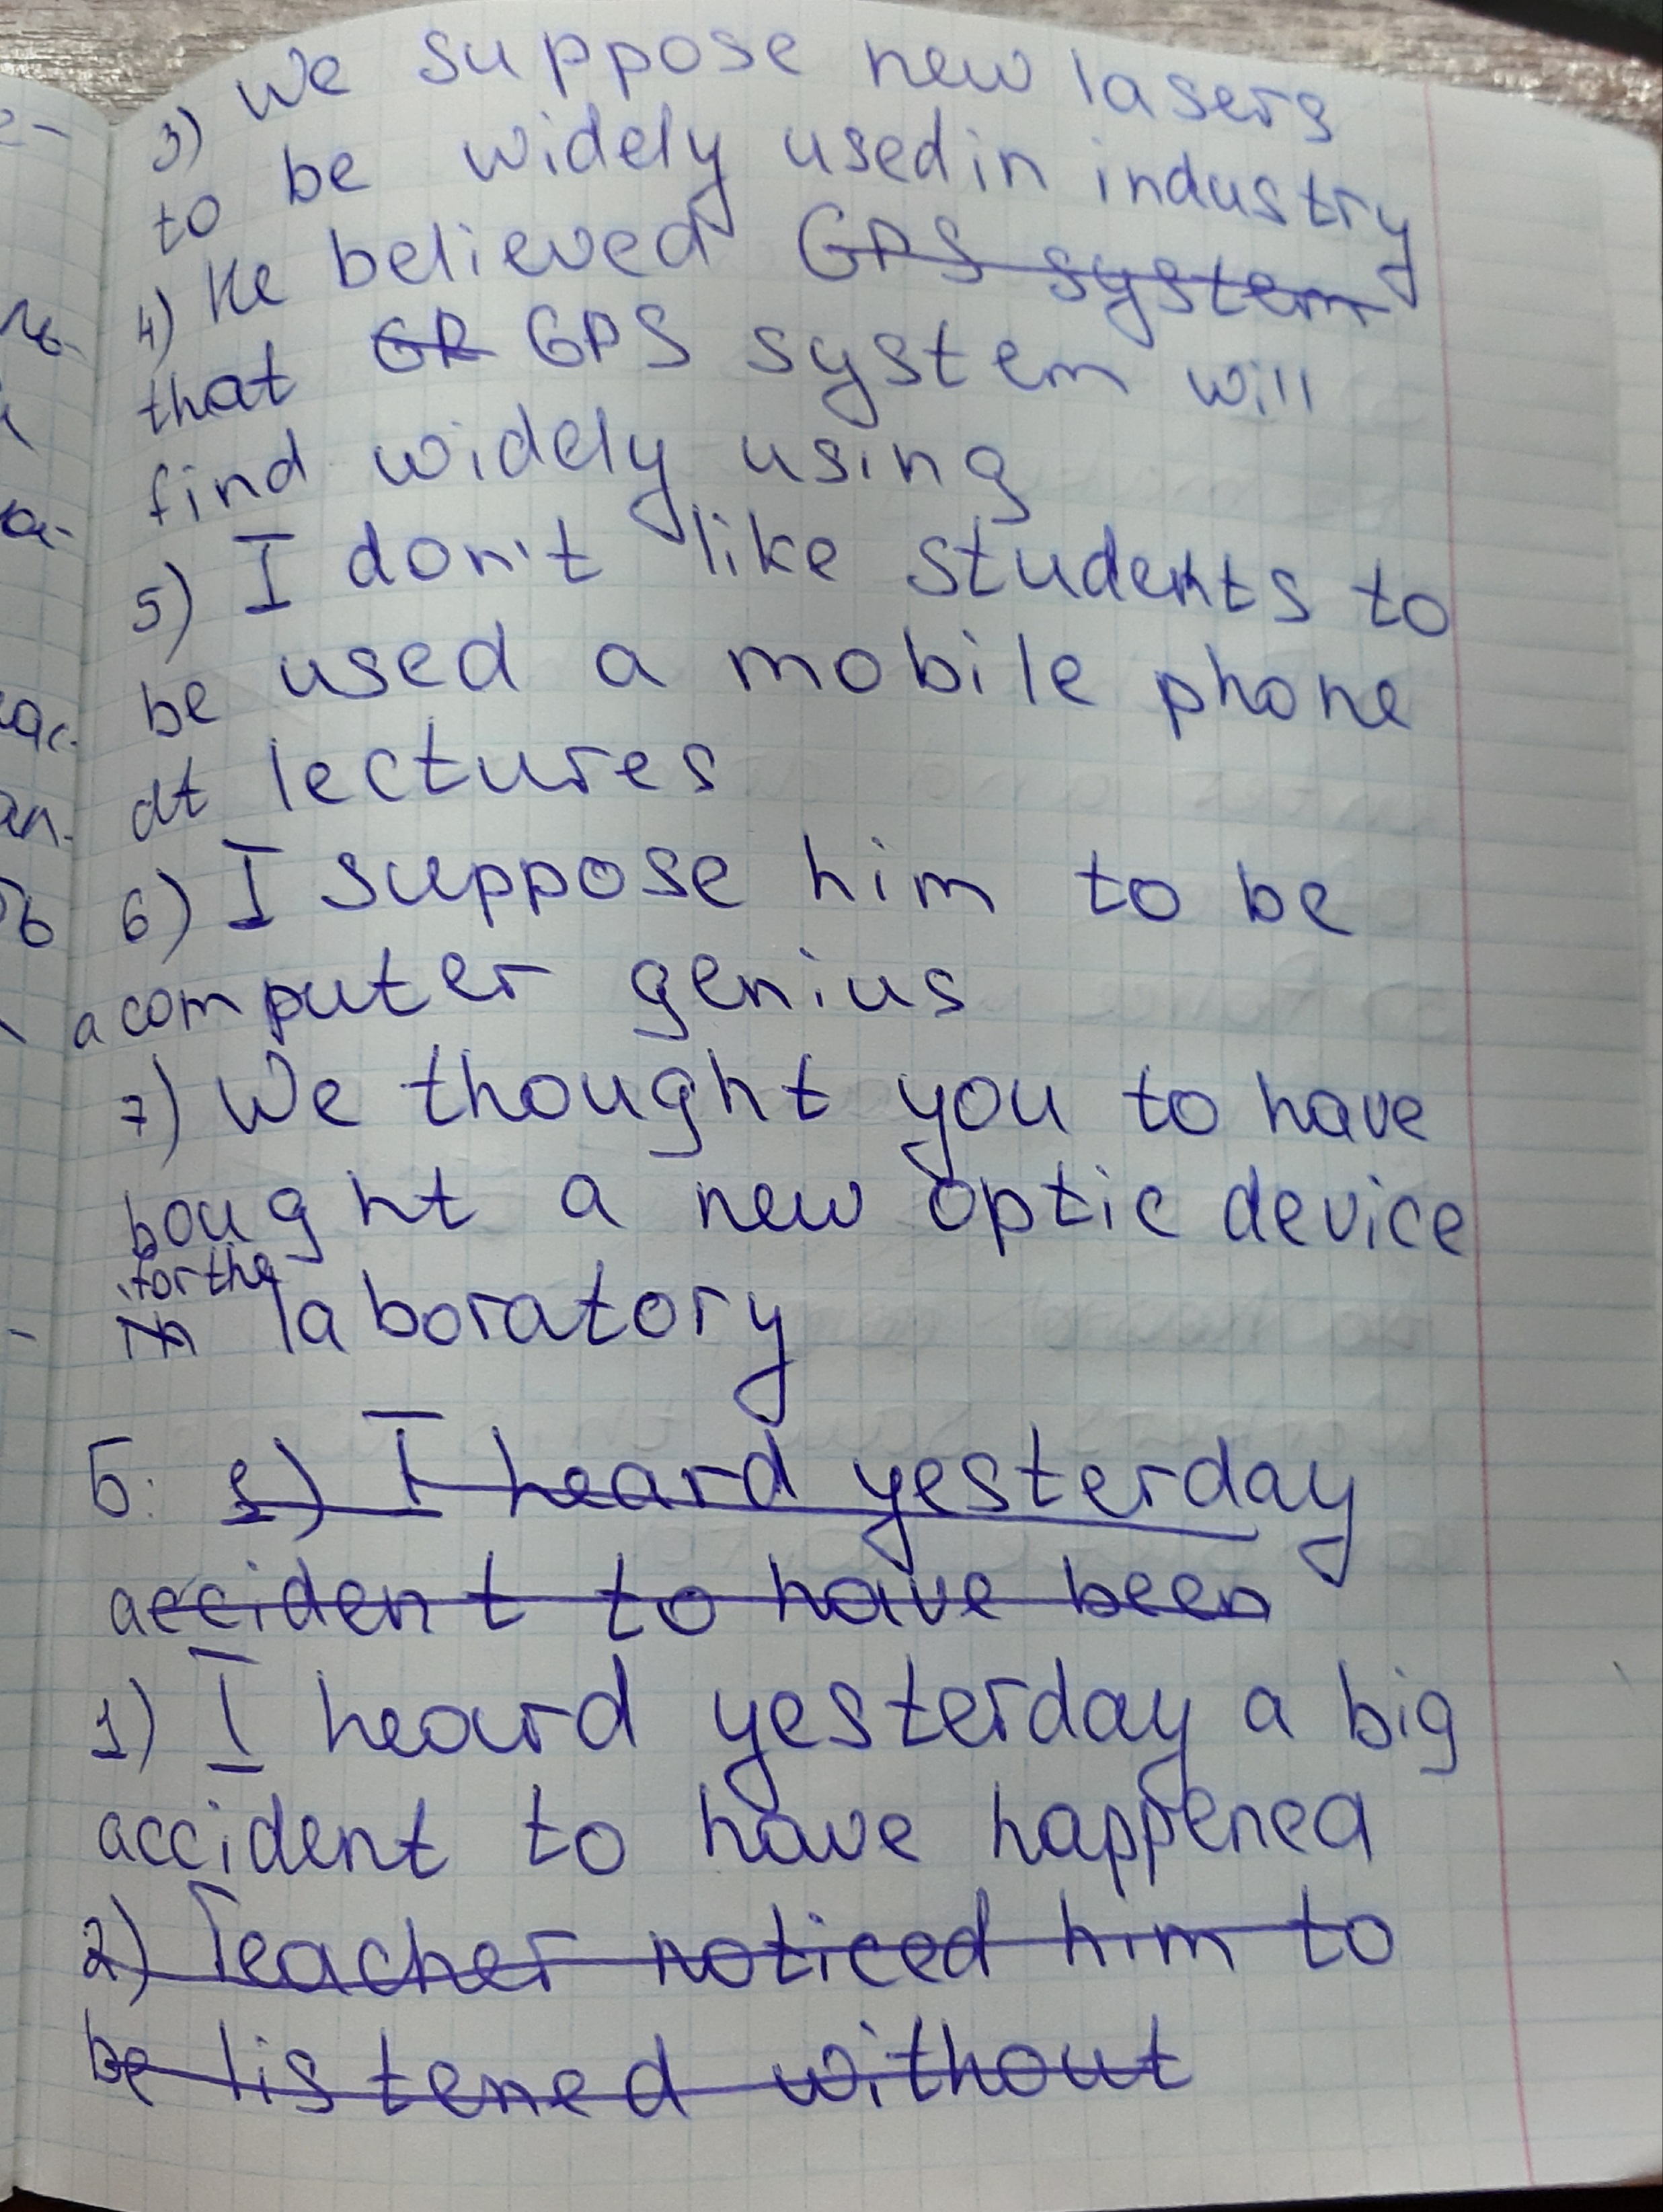 3) We suppose new lasers
to be widely used in industry
4) He believed GPS system
that GP GPS system will
find widely using
5) I don't like students to
be used a mobile phone
at lectures
6) I suppose him to be
a computer genius
7) We thought you to have
bought a new optic device
for the
in laboratory
Б: 1) I heard yesterday
accident to have been
1) I heard yesterday a big
accident to have happened
2) Teacher noticed him to
be listened without